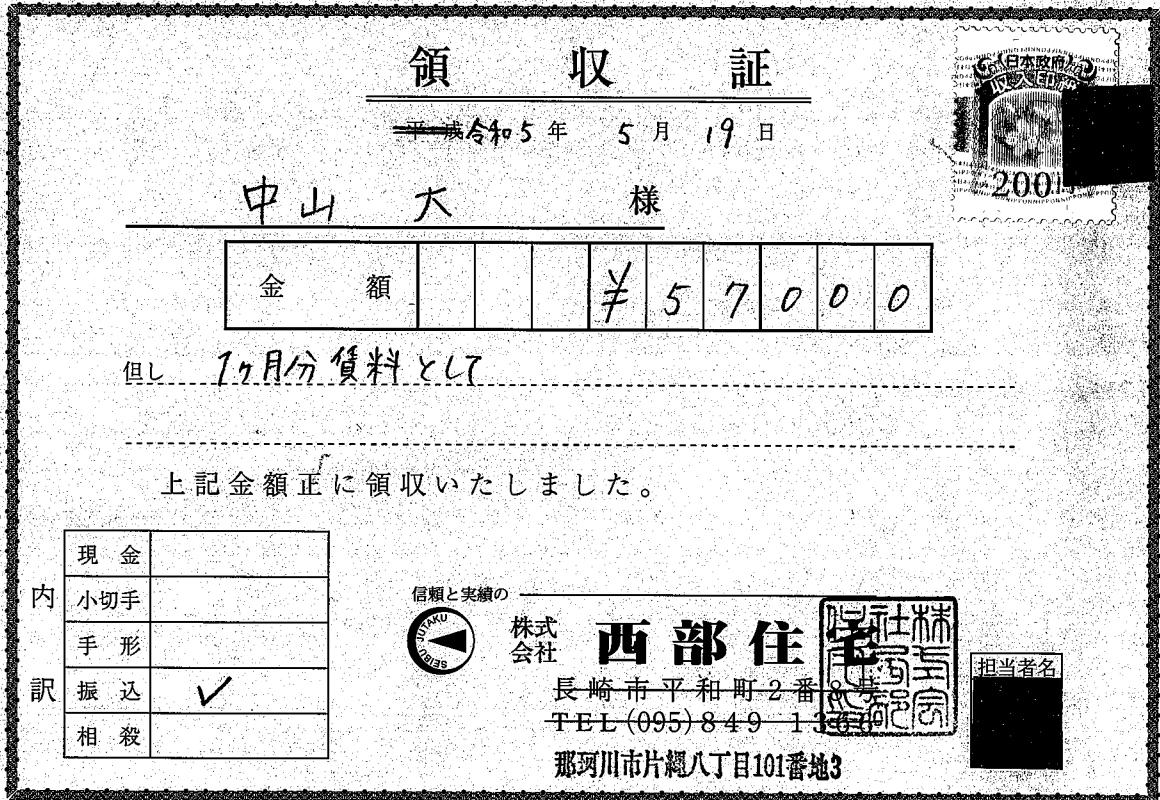 領収証
日本政府
収入印紙
200円
平成令和5年 5月19日
中山 大 様
金額 ¥57000
但し 1ヶ月分賃料として
上記金額正に領収いたしました。
内訳
現金
小切手
手形
振込 ✓
相殺
信頼と実績の
SEIBU JUTAKU
株式会社 西部住宅
長崎市平和町2番8号
TEL(095)849 1366
那珂川市片縄八丁目101番地3
担当者名